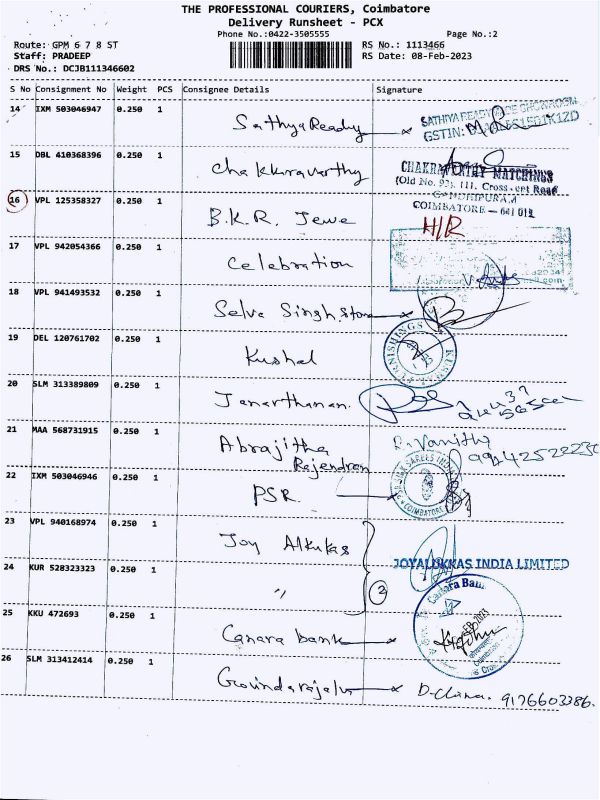 THE PROFESSIONAL COURIERS, Coimbatore
Delivery Runsheet - PCX
Phone No.:0422-3505555 Page No.:2
Route: GPM 6 7 8 ST RS No.: 1113466
Staff: PRADEEP RS Date: 08-Feb-2023
DRS No.: DCJB111346602
S No Consignment No Weight PCS Consignee Details Signature
14 IXM 503046947 0.250 1 Sathya Ready
SATHIYA READYMADE SHOWROOM
GSTIN:
15 DBL 410368396 0.250 1 Chakkaravarthy
CHAKRAVARTHY MATCHINGS
(Old No. 93), 111, Cross cut Road
GANDHIPURAM
COIMBATORE - 641 012
16 VPL 125358327 0.250 1 B.K.R. Jewe H/R
17 VPL 942054366 0.250 1 Celebration
18 VPL 941493532 0.250 1 Selva Singh Store
19 DEL 120761702 0.250 1 Kushal
20 SLM 313389809 0.250 1 Janarthanan.
21 MAA 568731915 0.250 1 Abrajitha Rajendran R. Vanitha
22 IXM 503046946 0.250 1 PSR
COIMBATORE
23 VPL 940168974 0.250 1 Joy Alkukas
JOYALUKKAS INDIA LIMITED
24 KUR 528323323 0.250 1 〃 2
25 KKU 472693 0.250 1 Canara bank
Canara Bank
26 SLM 313412414 0.250 1 Govindarajalu 9176603386.